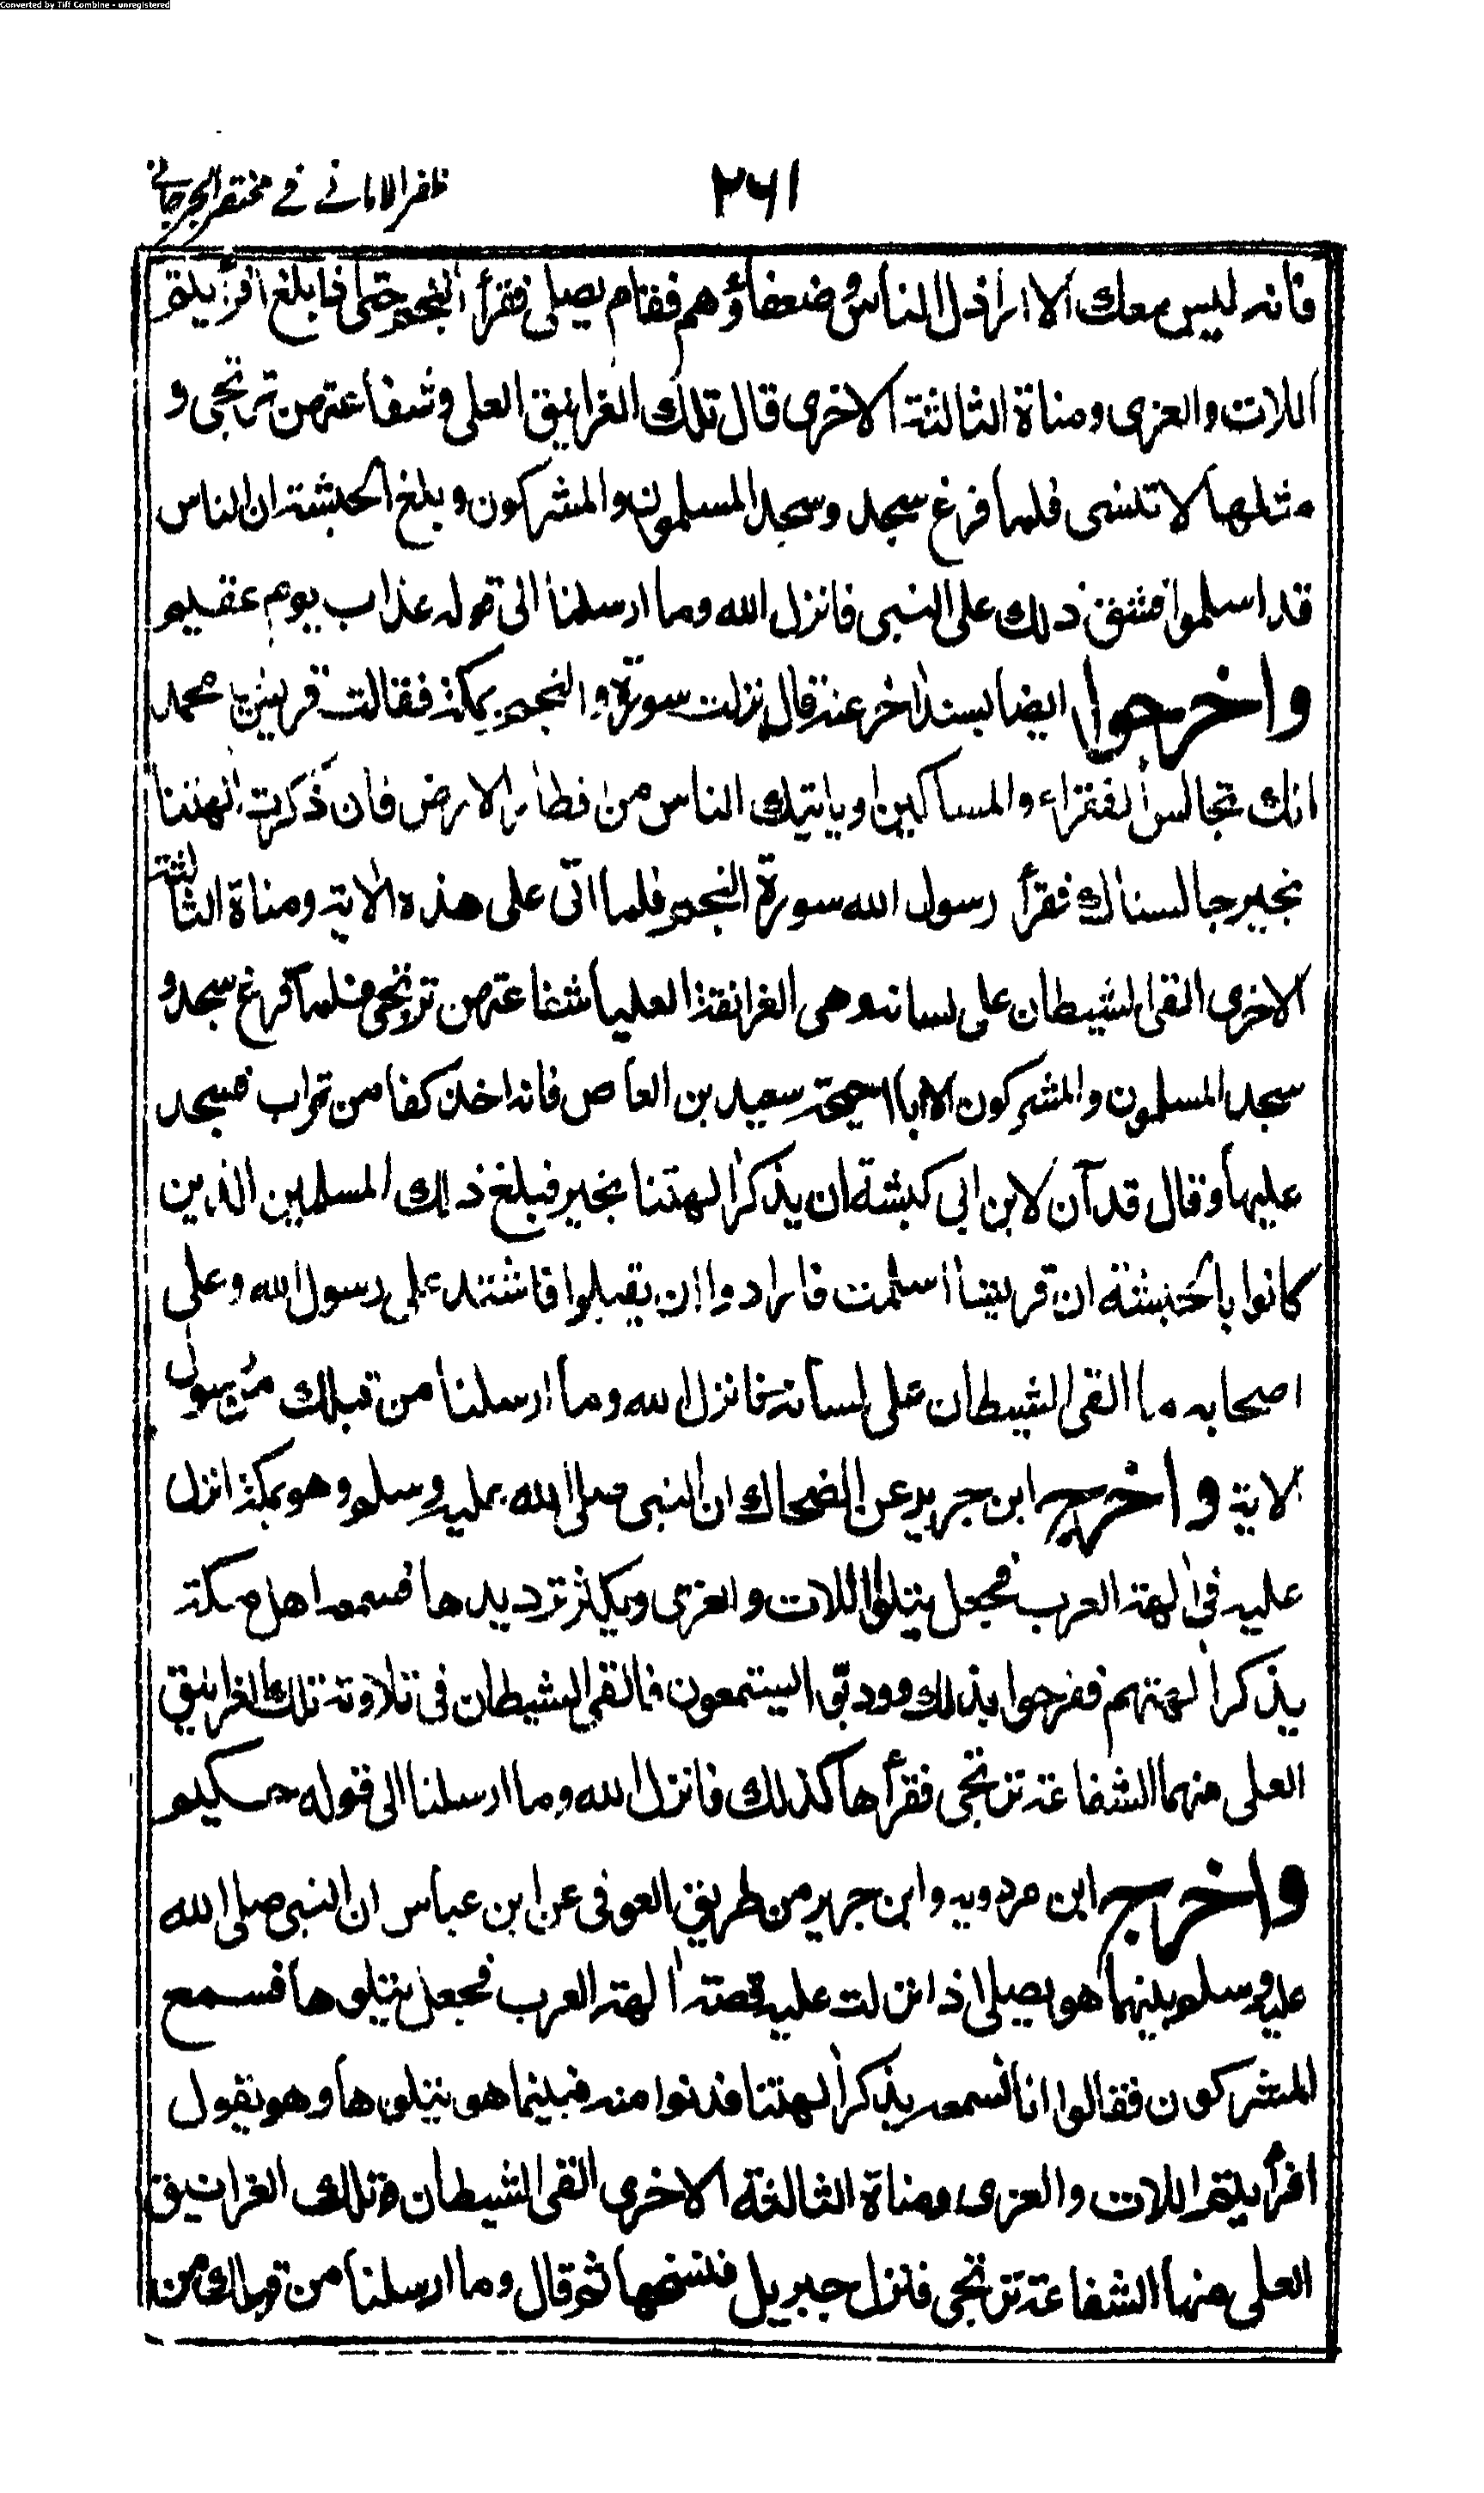 Converted by Tiff Combine - unregistered
٢٦١
ظفر الامانے فے مختصر الجرجانے
فانه ليس معك الا اراذل الناس وضعفاؤهم فقام يصلى فقرأ النجم حتى فابلغ افرأيتم
اللات والعزى ومناة الثالثة الاخرى قال تلك الغرانيق العلى وشفاعتهن ترتجى و
مثلها لا تنسى فلما فرغ سجد وسجد المسلمون والمشركون وبلغ الحبشة ان الناس
قد اسلموا فشق ذلك على النبى فانزل الله وما ارسلنا الى قوله عذاب يوم عقيم
واخرجوا ايضا بسند اخر عنه قال نزلت سورة والنجم بمكة فقالت قريش يا محمد
انك تجالس الفقراء والمساكين وياتيك الناس من اقطار الارض فان ذكرت الهتنا
بخير جالسناك فقرأ رسول الله سورة النجم فلما اتى على هذه الاية ومناة الثالثة
الاخرى القى الشيطان على لسانه وهى الغرانقة العليا شفاعتهن ترتجى فلما فرغ سجد و
سجد المسلمون والمشركون الا ابا احيحة سعيد بن العاص فانه اخذ كفا من تراب فسجد
عليها وقال قد آن لابن ابى كبشة ان يذكر الهتنا بخير فبلغ ذلك المسلمين الذين
كانوا بالحبشة ان قريشا اسلمت فارادوا ان يقبلوا فاشتد على رسول الله وعلى
اصحابه ما القى الشيطان على لسانه فانزل الله وما ارسلنا من قبلك من رسول
الاية واخرج ابن جرير عن الضحاك ان النبى صلى الله عليه وسلم وهو بمكة انزل
عليه فى الهة العرب فجعل يتلو اللات والعزى ويكثر ترديدها فسمعه اهل مكة
يذكر الهتهم ففرحوا بذلك ودنوا يستمعون فالقى الشيطان فى تلاوته تلك الغرانيق
العلى منها الشفاعة ترتجى فقرأها كذلك فانزل الله وما ارسلنا الى قوله حكيم
واخرج ابن مردويه وابن جرير من طريق العوفى عن ابن عباس ان النبى صلى الله
عليه وسلم بينما هو يصلى اذ انزلت عليه قصة الهة العرب فجعل يتلوها فسمع
المشركون فقالوا انا نسمعه يذكر الهتنا فدنوا منه فبينما هو يتلوها وهو يقول
افرأيتم اللات والعزى ومناة الثالثة الاخرى القى الشيطان تلك الغرانيق
العلى منها الشفاعة ترتجى فنزل جبريل فنسخها ثم قال وما ارسلنا من قبلك من